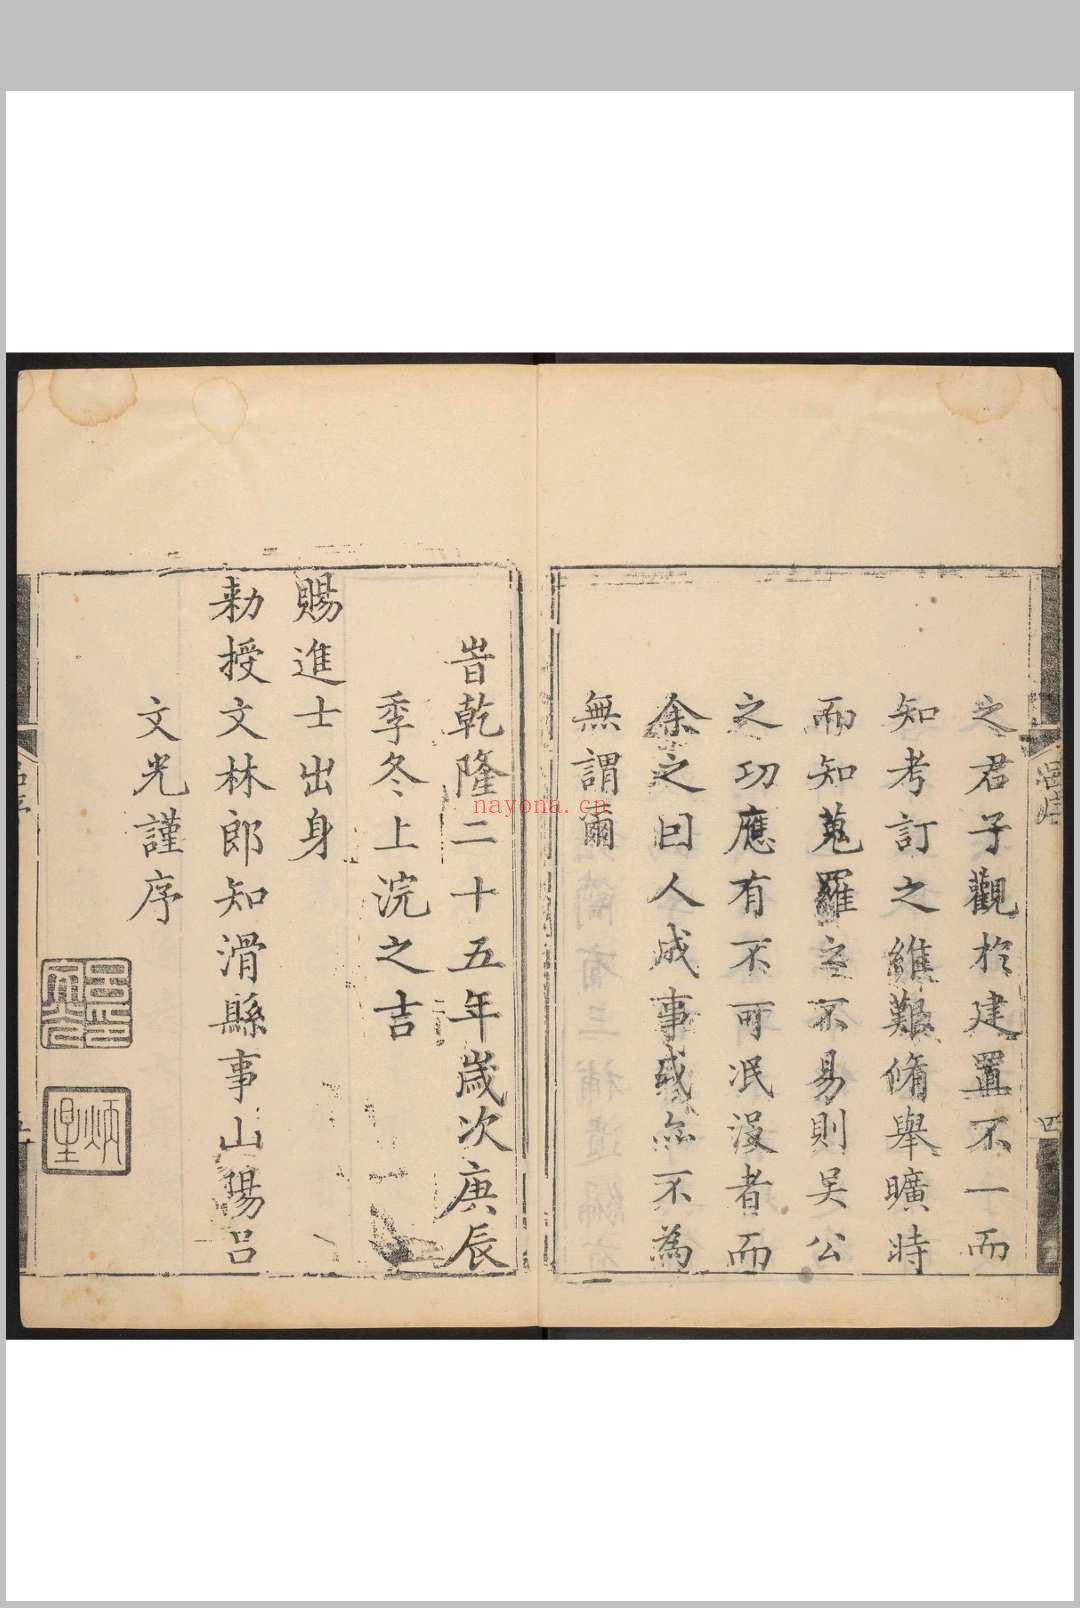 之君子觀於建置不一而
知考訂之維艱脩舉曠時
而知蒐羅之不易則吳公
之功應有不可泯沒者而
余之曰人成事或亦不為
無謂爾
旹乾隆二十五年歲次庚辰
季冬上浣之吉
賜進士出身
勅授文林郎知滑縣事山陽呂
文光謹序
四
nayona.cn